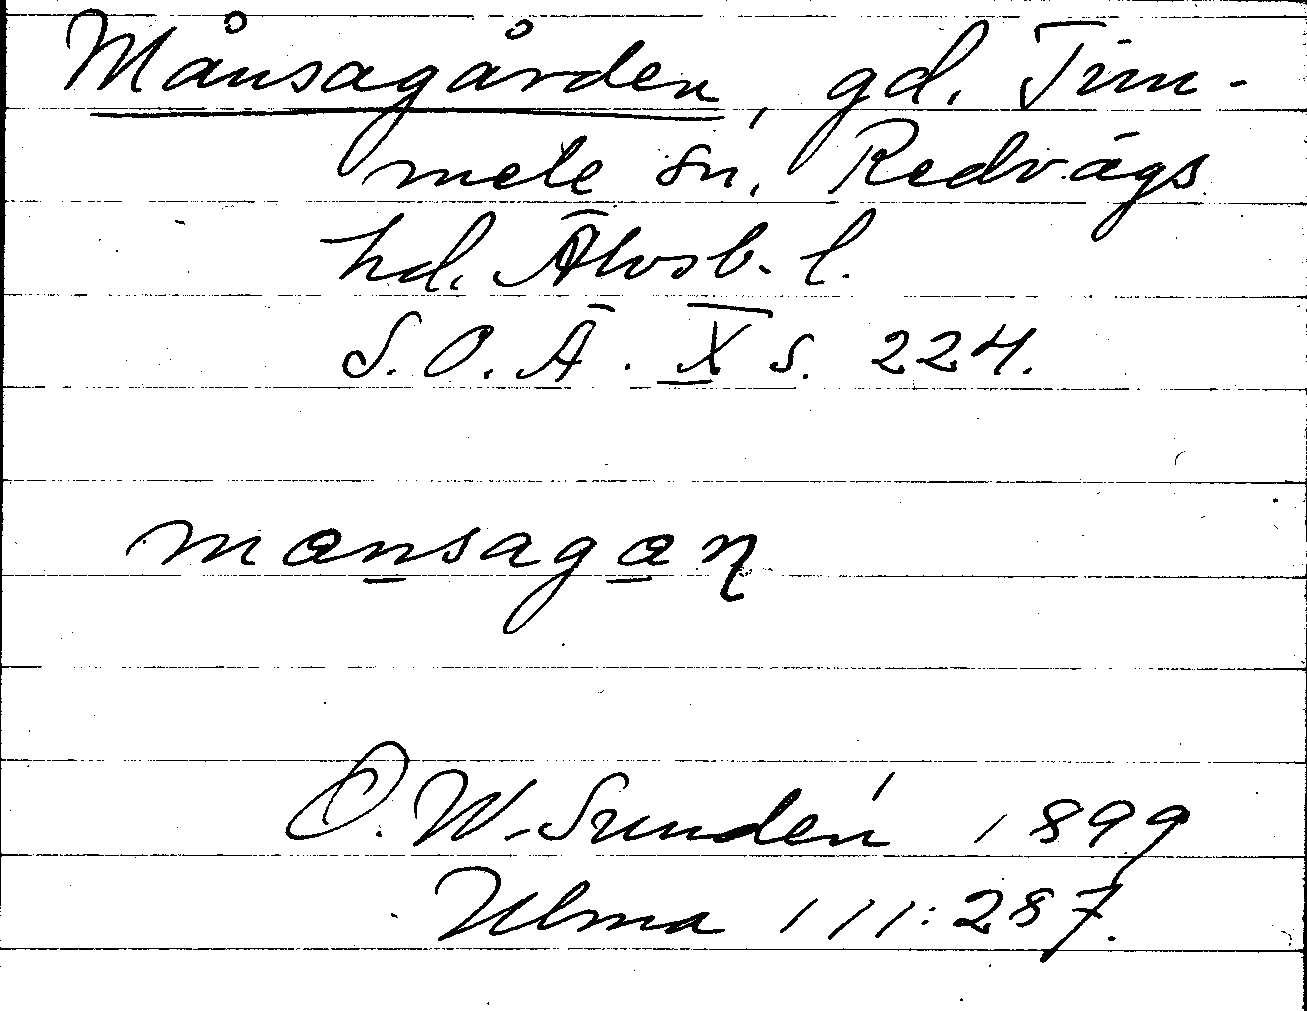 Månsagården, gd. Tim-
mele sn, Redvägs
hd. Älvsb. l.
S. O. Ä. X s. 224.
mansagaɳ
O. W-Sundén 1899
Ulma 111:287.